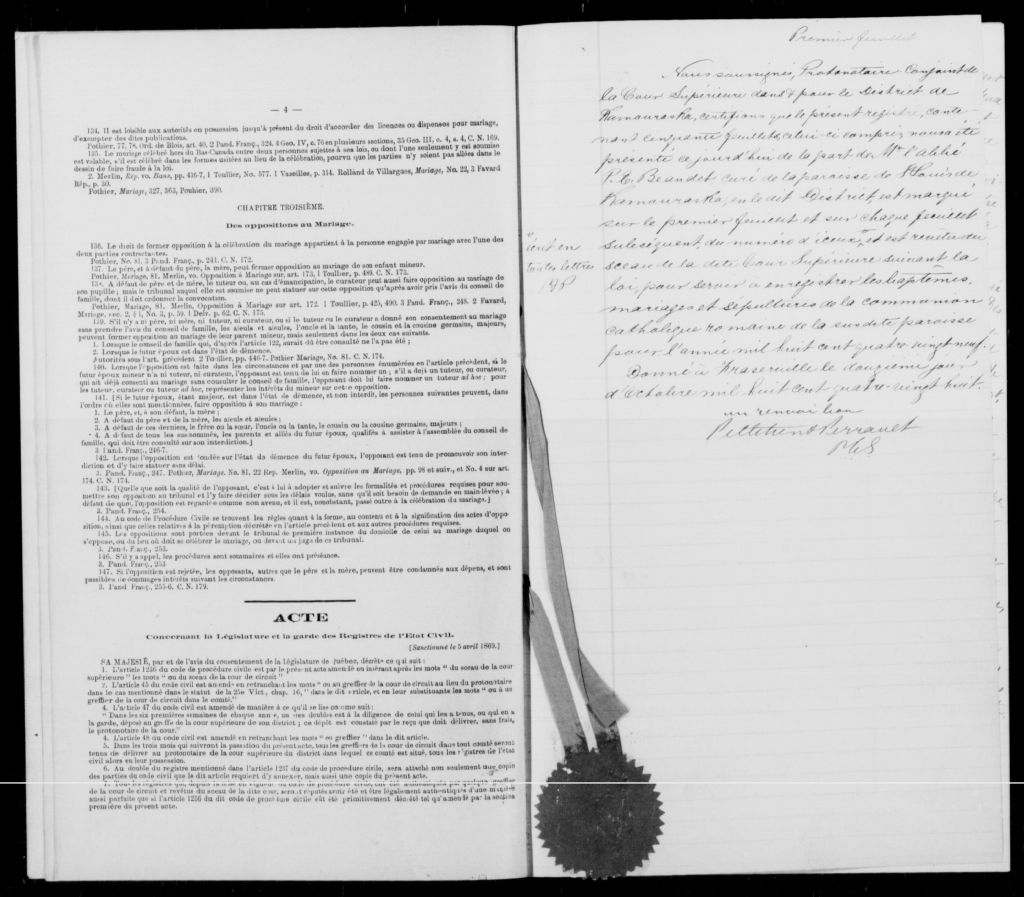 — 4 —
134. Il est loisible aux autorités en possession jusqu'à présent du droit d'accorder des licences ou dispenses pour mariage,
d'exempter des dites publications.
Pothier, 77, 78. Ord. de Blois, art. 40. 2 Pand. Franç., 324. 4 Geo. IV, c. 76 en plusieurs sections, 35 Geo. III, c. 4, s. 4, C. N. 169.
135. Le mariage célébré hors du Bas-Canada entre deux personnes sujettes à ses lois, ou dont l'une seulement y est soumise
est valable, s'il est célébré dans les formes usitées au lieu de la célébration, pourvu que les parties n'y soient pas allées dans le
dessin de faire fraude à la loi.
2. Merlin, Rep. vo. Bans, pp. 416-7, 1 Toullier, No. 577. 1 Vazeilles, p. 314. Rolland de Villargues, Mariage, No. 23, 3 Favard
Rép., p. 30.
Pothier, Mariage, 327, 363, Pouhier, 390.
CHAPITRE TROISIÈME.
Des oppositions au Mariage.
136. Le droit de former opposition à la célébration du mariage appartient à la personne engagée par mariage avec l'une des
deux parties contractantes.
Pothier, No. 81. 3 Pand. Franç., p. 241. C. N. 172.
137. Le père, et à défaut du père, la mère, peut former opposition au mariage de son enfant mineur.
Pothier, Mariage, 81. Merlin, vo. Opposition à Mariage sur. art. 173, 1 Toullier, p. 489. C. N. 173.
138. A défaut de père et de mère, le tuteur ou, au cas d'émancipation, le curateur peut aussi faire opposition au mariage de
son pupille ; mais le tribunal auquel elle est soumise ne peut statuer sur cette opposition qu'après avoir pris l'avis du conseil de
famille, dont il doit ordonner la convocation.
Pothier, Mariage, 81. Merlin, Opposition à Mariage sur art. 172. 1 Toullier, p. 425, 490. 3 Pand. Franç., 248. 2 Favard,
Mariage, sec. 2, § 1, No. 3, p. 59. 1 Delv. p. 62. C. N. 175.
139. S'il n'y a ni père, ni mère, ni tuteur, ni curateur, ou si le tuteur ou le curateur a donné son consentement au mariage
sans prendre l'avis du conseil de famille, les aïeuls et aïeules, l'oncle et la tante, le cousin et la cousine germains, majeurs,
peuvent former opposition au mariage de leur parent mineur, mais seulement dans les deux cas suivants.
1. Lorsque le conseil de famille qui, d'après l'article 122, aurait dû être consulté ne l'a pas été ;
2. Lorsque le futur époux est dans l'état de démence.
Autorités sous l'art. précédent 2 Toullier, pp. 446-7. Pothier Mariage, No. 81. C. N. 174.
140. Lorsque l'opposition est faite dans les circonstances et par une des personnes énumérées en l'article précédent, si le
futur époux mineur n'a ni tuteur, ni curateur, l'opposant est tenu de lui en faire nommer un ; s'il a déjà un tuteur, ou curateur,
qui ait déjà consenti au mariage sans consulter le conseil de famille, l'opposant doit lui faire nommer un tuteur ad hoc ; pour
les tuteur, curateur ou tuteur ad hoc, représenter les intérêts du mineur sur cette opposition.
141. [Si le futur époux, étant majeur, est dans l'état de démence, et non interdit, les personnes suivantes peuvent, dans
l'ordre où elles sont mentionnées, faire opposition à son mariage :
1. Le père, et, à son défaut, la mère ;
2. A défaut du père et de la mère, les aïeuls et aïeules ;
3. A défaut de ces derniers, le frère ou la sœur, l'oncle ou la tante, le cousin ou la cousine germains, majeurs ;
4. A défaut de tous les susnommés, les parents et alliés du futur époux, qualifiés à assister à l'assemblée du conseil de
famille, qui doit être consulté sur son interdiction.]
3 Pand. Franç., 246-7.
142. Lorsque l'opposition est fondée sur l'état de démence du futur époux, l'opposant est tenu de promouvoir son inter-
diction et d'y faire statuer sans délai.
3. Pand. Franç., 247. Pothier, Mariage. No. 81, 22 Rep. Merlin, vo. Opposition au Mariage, pp. 98 et suiv., et No. 4 sur art.
174. C. N. 174.
143. [Quelle que soit la qualité de l'opposant, c'est à lui à adopter et suivre les formalités et procédures requises pour sou-
mettre son opposition au tribunal et l'y faire décider sous les délais voulus, sans qu'il soit besoin de demande en main-levée ; à
défaut de quoi, l'opposition est regardée comme non avenu, et il est, nonobstant, passé outre à la célébration du mariage.]
3. Pand. Franç., 254.
144. Au code de Procédure Civile se trouvent les règles quant à la forme, au contenu et à la signification des actes d'oppo-
sition, ainsi que celles relatives à la péremption décrétée en l'article précédent et aux autres procédures requises.
145. Les oppositions sont portées devant le tribunal de première instance du domicile de celui au mariage duquel on
s'oppose, ou du lieu où doit se célébrer le mariage, ou devant un juge de ce tribunal.
3. Pand. Franç., 253.
146. S'il y a appel, les procédures sont sommaires et elles ont préséance.
3. Pand. Franç., 253
147. Si l'opposition est rejetée, les opposants, autres que le père et la mère, peuvent être condamnés aux dépens, et sont
passibles de dommages intérêts suivant les circonstances.
3. Pand Franç., 255-6. C. N. 179.
ACTE
Concernant la Législature et la garde des Registres de l'Etat Civil.
[Sanctionné le 5 avril 1869.]
SA MAJESTÉ, par et de l'avis du consentement de la Législature de Québec, décrète ce qui suit :
1. L'article 1236 du code de procédure civile est par le présent acte amendé en insérant après les mots " du sceau de la cour
supérieure " les mots " ou du sceau de la cour de circuit "
2. L'article 45 du code civil est amendé en retranchant les mots " ou au greffier de la cour de circuit au lieu du protonotaire
dans le cas mentionné dans le statut de la 25e Vict., chap. 16, " dans le dit article, et en leur substituants les mots " ou à un
greffier de la cour de circuit dans le comté."
4. L'article 47 du code civil est amendé de manière à ce qu'il se lise comme suit :
" Dans les six premières semaines de chaque année, un des doubles est à la diligence de celui qui les a tenus, ou qui en a
la garde, déposé au greffe de la cour supérieure de son district ; ce dépôt est constaté par le reçu que doit délivrer, sans frais,
le protonotaire de la cour."
4. L'article 48 du code civil est amendé en retranchant les mots " ou greffier " dans le dit article.
5. Dans les trois mois qui suivront la passation du présent acte, tous les greffiers de la cour de circuit dans tout comté seront
tenus de délivrer au protonotaire de la cour supérieure du district dans lequel ce comté est situé, tous les régistres de l'état
civil alors en leur possession.
6. Au double du registre mentionné dans l'article 1237 du code de procédure civile, sera attaché non seulement une copie
des parties du code civil que le dit article requiert d'y annexer, mais aussi une copie du présent acte.
7. Tous les registres qui, depuis la mise en vigueur du code de procédure civile, ont été authentiqués par quelque greffier
de la cour de circuit et revêtus du sceau de la dite cour, seront réputés avoir été et être légalement authentiqués d'une manière
aussi parfaite que si l'article 1236 du dit code de procédure civile eût été primitivement décrété tel qu'amendé par la section
première du présent acte.
Premier feuillet
Nous soussignés, Protonotaire Conjoint de
la Cour Supérieure dans & pour le District de
Kamouraska, certifions que le présent registre, conte-
nant cinquante feuillets, celui-ci compris, nous a été
présenté ce jourd'hui de la part de Mr l'abbé
Beaudet curé de la paroisse de St Louis de
Kamouraska, en le dit District, est marqué
sur le premier feuillet et sur chaque feuillet
subséquent, du numéro d'iceux, et est revêtu du
sceau de la dite Cour Supérieure suivant la
loi, pour servir à enregistrer les baptêmes,
mariages et sépultures de la communion
catholique romaine de la susdite paroisse
pour l'année mil huit cent quatre vingt neuf.
Donné à Fraserville le douzième jour
d'Octobre mil huit cent quatre-vingt huit.
un renvoi bon
Pelletier & Perrault
PCS
écrit en
toutes lettres